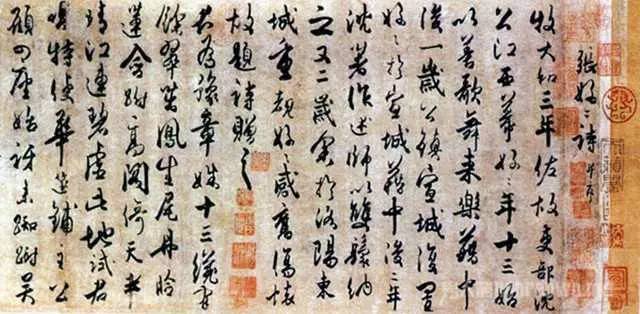 張好〻詩 并序
牧大和三年佐故吏部沈
公江西幕好〻年十三始
以善歌舞来樂籍中
後一歲公鎮宣城復置
好〻於宣城籍中後二年
沈著作述師以雙鬟納
之又二歲余於洛陽東
城重覩好〻感舊傷懷
故題詩贈之
君為豫章姝十三纔有
餘翠茁鳳生尾丹臉
蓮含跗高閣倚天半
晴江連碧虛此地試君
唱特使華筵鋪主公
顧四座始訝来踟蹰吴